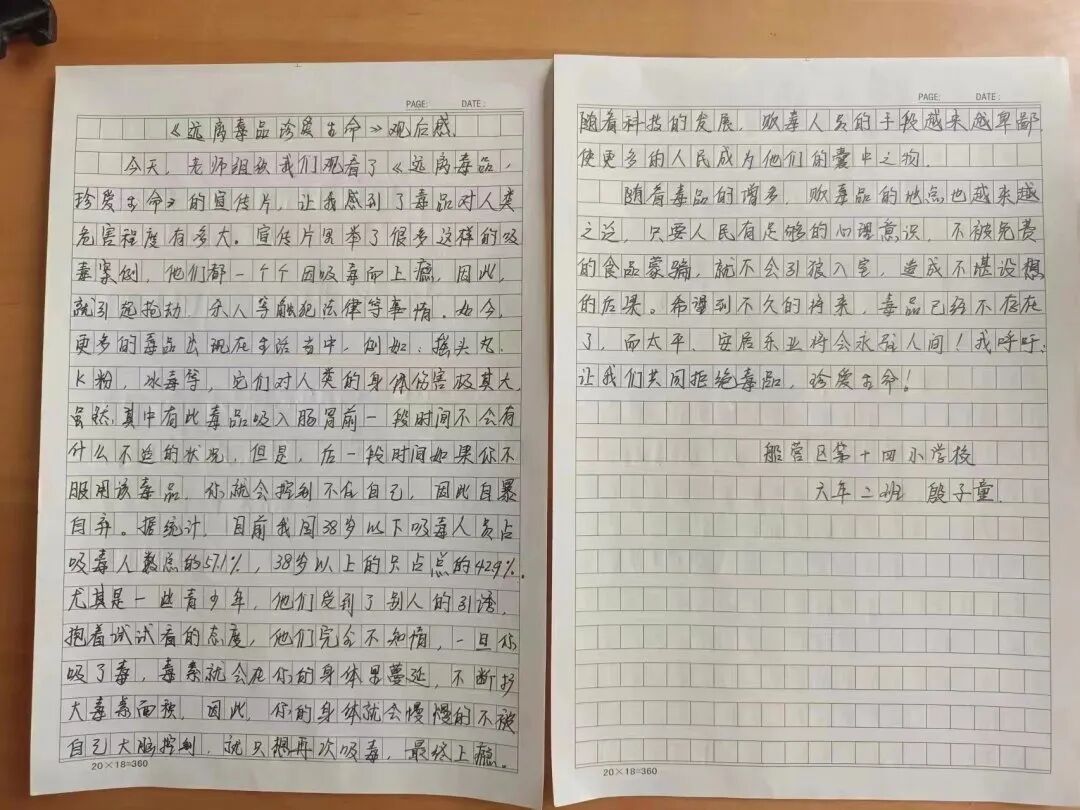 PAGE: DATE:
《远离毒品珍爱生命》观后感.
今天,老师组织我们观看了《远离毒品,
珍爱生命》的宣传片,让我感到了毒品对人类
危害程度有多大。宣传片里举了很多这样的吸
毒案例,他们都一个个因吸毒而上瘾,因此,
就引起抢劫,杀人等触犯法律等事情.如今,
更多的毒品出现在生活当中,例如:摇头丸,
K粉,冰毒等,它们对人类的身体伤害极其大,
虽然其中有此毒品吸入肠胃前一段时间不会有
什么不适的状况,但是,后一段时间如果你不
服用该毒品,你就会控制不住自己,因此自暴
自弃。据统计,目前我国38岁以下吸毒人员占
吸毒人数总的57.1%,38岁以上的只占总的42.9%.
尤其是一些青少年,他们受到了别人的引诱,
抱着试试看的态度,他们完全不知情,一旦你
吸了毒,毒素就会在你的身体里蔓延,不断扩
大毒素面积,因此,你的身体就会慢慢的不被
自己大脑控制,就只想再次吸毒,最终上瘾。
20×18=360
PAGE: DATE:
随着科技的发展,贩毒人员的手段越来越卑鄙,
使更多的人民成为他们的囊中之物.
随着毒品的增多,贩毒品的地点也越来越
之泛,只要人民有足够的心理意识,不被免费
的食品蒙骗,就不会引狼入室,造成不堪设想
的后果。希望到不久的将来,毒品已经不存在
了,而太平、安居乐业将会永驻人间!我呼吁:
让我们共同拒绝毒品,珍爱生命!
船营区第十四小学校
六年二班 殷子童.
20×18=360